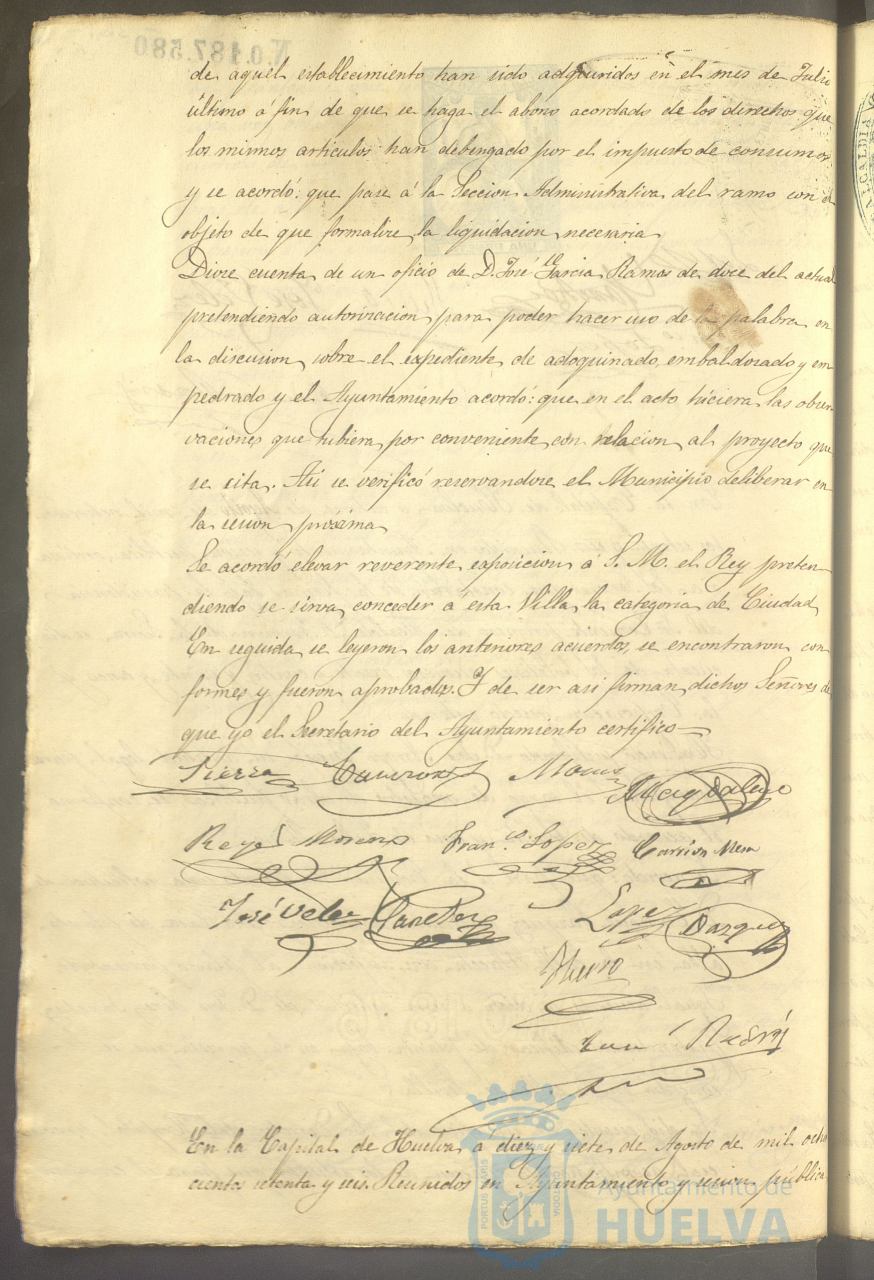 N.0.187.580
de aquel establecimiento han sido adquiridos en el mes de Julio
último á fin de que se haga el abono acordado de los derechos que
los mismos articulos han debengado por el impuesto de consumos
y se acordó: que pase á la Seccion Administrativa del ramo con el
objeto de que formalice la liquidacion necesaria
Diose cuenta de un oficio de D. José Garcia Ramos de doce del actual
pretendiendo autorizacion para poder hacer uso de la palabra en
la discusion sobre el expediente de adoquinado, embaldosado y em
pedrado y el Ayuntamiento acordó: que en el acto hiciera las obser
vaciones que tubiera por conveniente con relacion al proyecto que
se cita. Asi se verificó reservandose el Municipio deliberar en
la sesion próxima
Se acordó elevar reverente exposicion á S. M. el Rey preten
diendo se sirva conceder á esta Villa la categoria de Ciudad
En seguida se leyeron los anteriores acuerdos, se encontraron con
formes y fueron aprobados. Y de ser asi firman dichos Señores de
que yo el Secretario del Ayuntamiento certifico=
Reyes Moreno Fran.co Lopez Carrion Mesa
José Velez Lopez Vazquez
En la Capital de Huelva á diez y siete de Agosto de mil ocho
cientos setenta y seis. Reunidos en Ayuntamiento y sesion pública
PORTUS MARIS
Ayuntamiento de
HUELVA